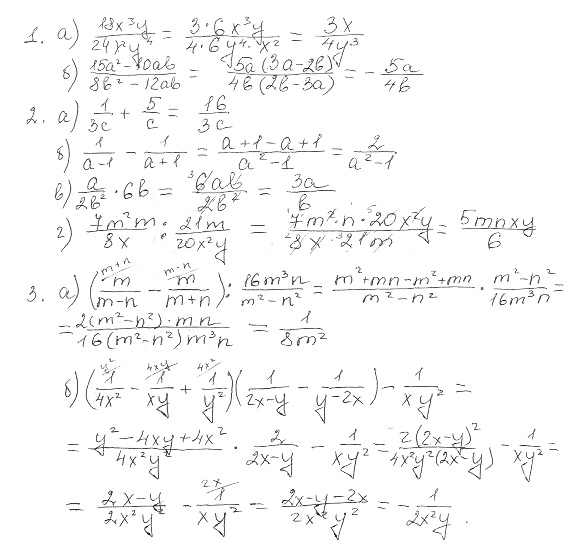 1. а) 18x³y/24x²y⁴ = 3·6x³y/4·6y⁴·x² = 3x/4y³
б) 15a²-10ab/8b²-12ab = 5a(3a-2b)/4b(2b-3a) = - 5a/4b
2. а) 1/3c + 5/c = 16/3c
б) 1/a-1 - 1/a+1 = a+1-a+1/a²-1 = 2/a²-1
в) a/2b² · 6b = ³6ab/2b² = 3a/b
г) 7m²n/8x : 21m/20x²y = ¹7m²·n·⁵20x²y/²8x·³21m = 5mnxy/6
3. а) (m+n m/m-n - m-n m/m+n) : 16m³n/m²-n² = m²+mn-m²+mn/m²-n² · m²-n²/16m³n =
= 2(m²-n²)·mn/16(m²-n²)m³n = 1/8m²
б) (y² 1/4x² - 4xy 1/xy + 4x² 1/y²)(1/2x-y - 1/y-2x) - 1/xy² =
= y²-4xy+4x²/4x²y² · 2/2x-y - 1/xy² = 2(2x-y)²/4x²y²(2x-y) - 1/xy² =
= 2x-y/2x²y² - 2x 1/xy² = 2x-y-2x/2x²y² = - 1/2x²y .